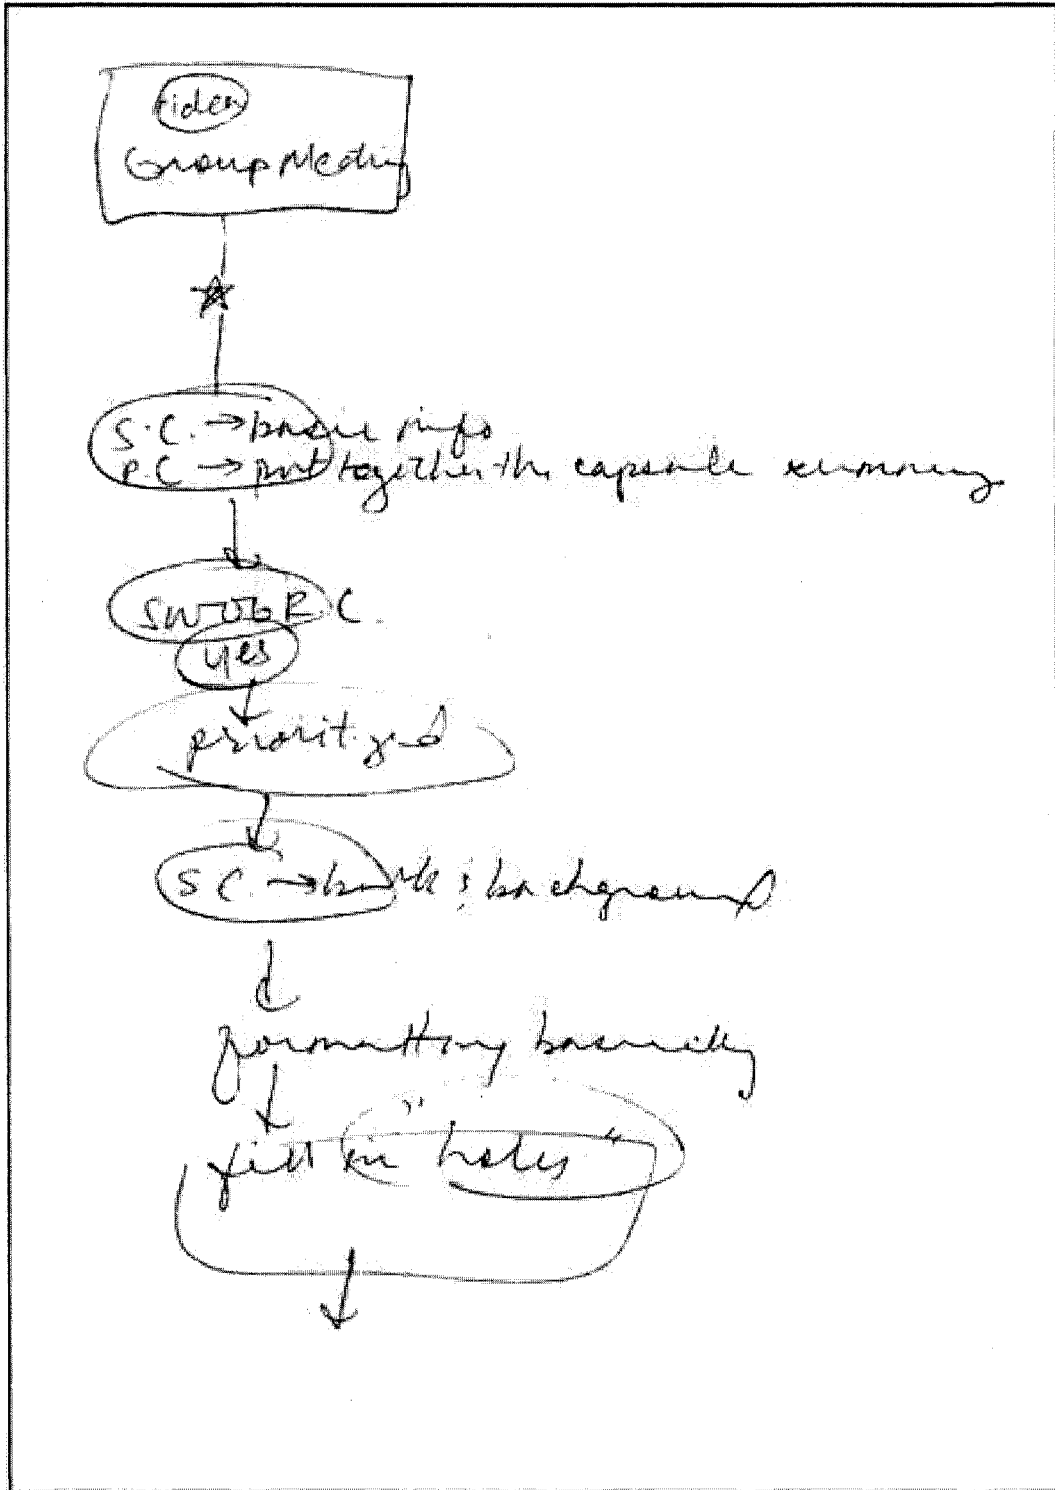 idea
Group Meeting
S.C. → basic info
P.C → put together the capsule summary
R.C.
yes
prioritized
S C. → background
formatting basically
fill in "holes"